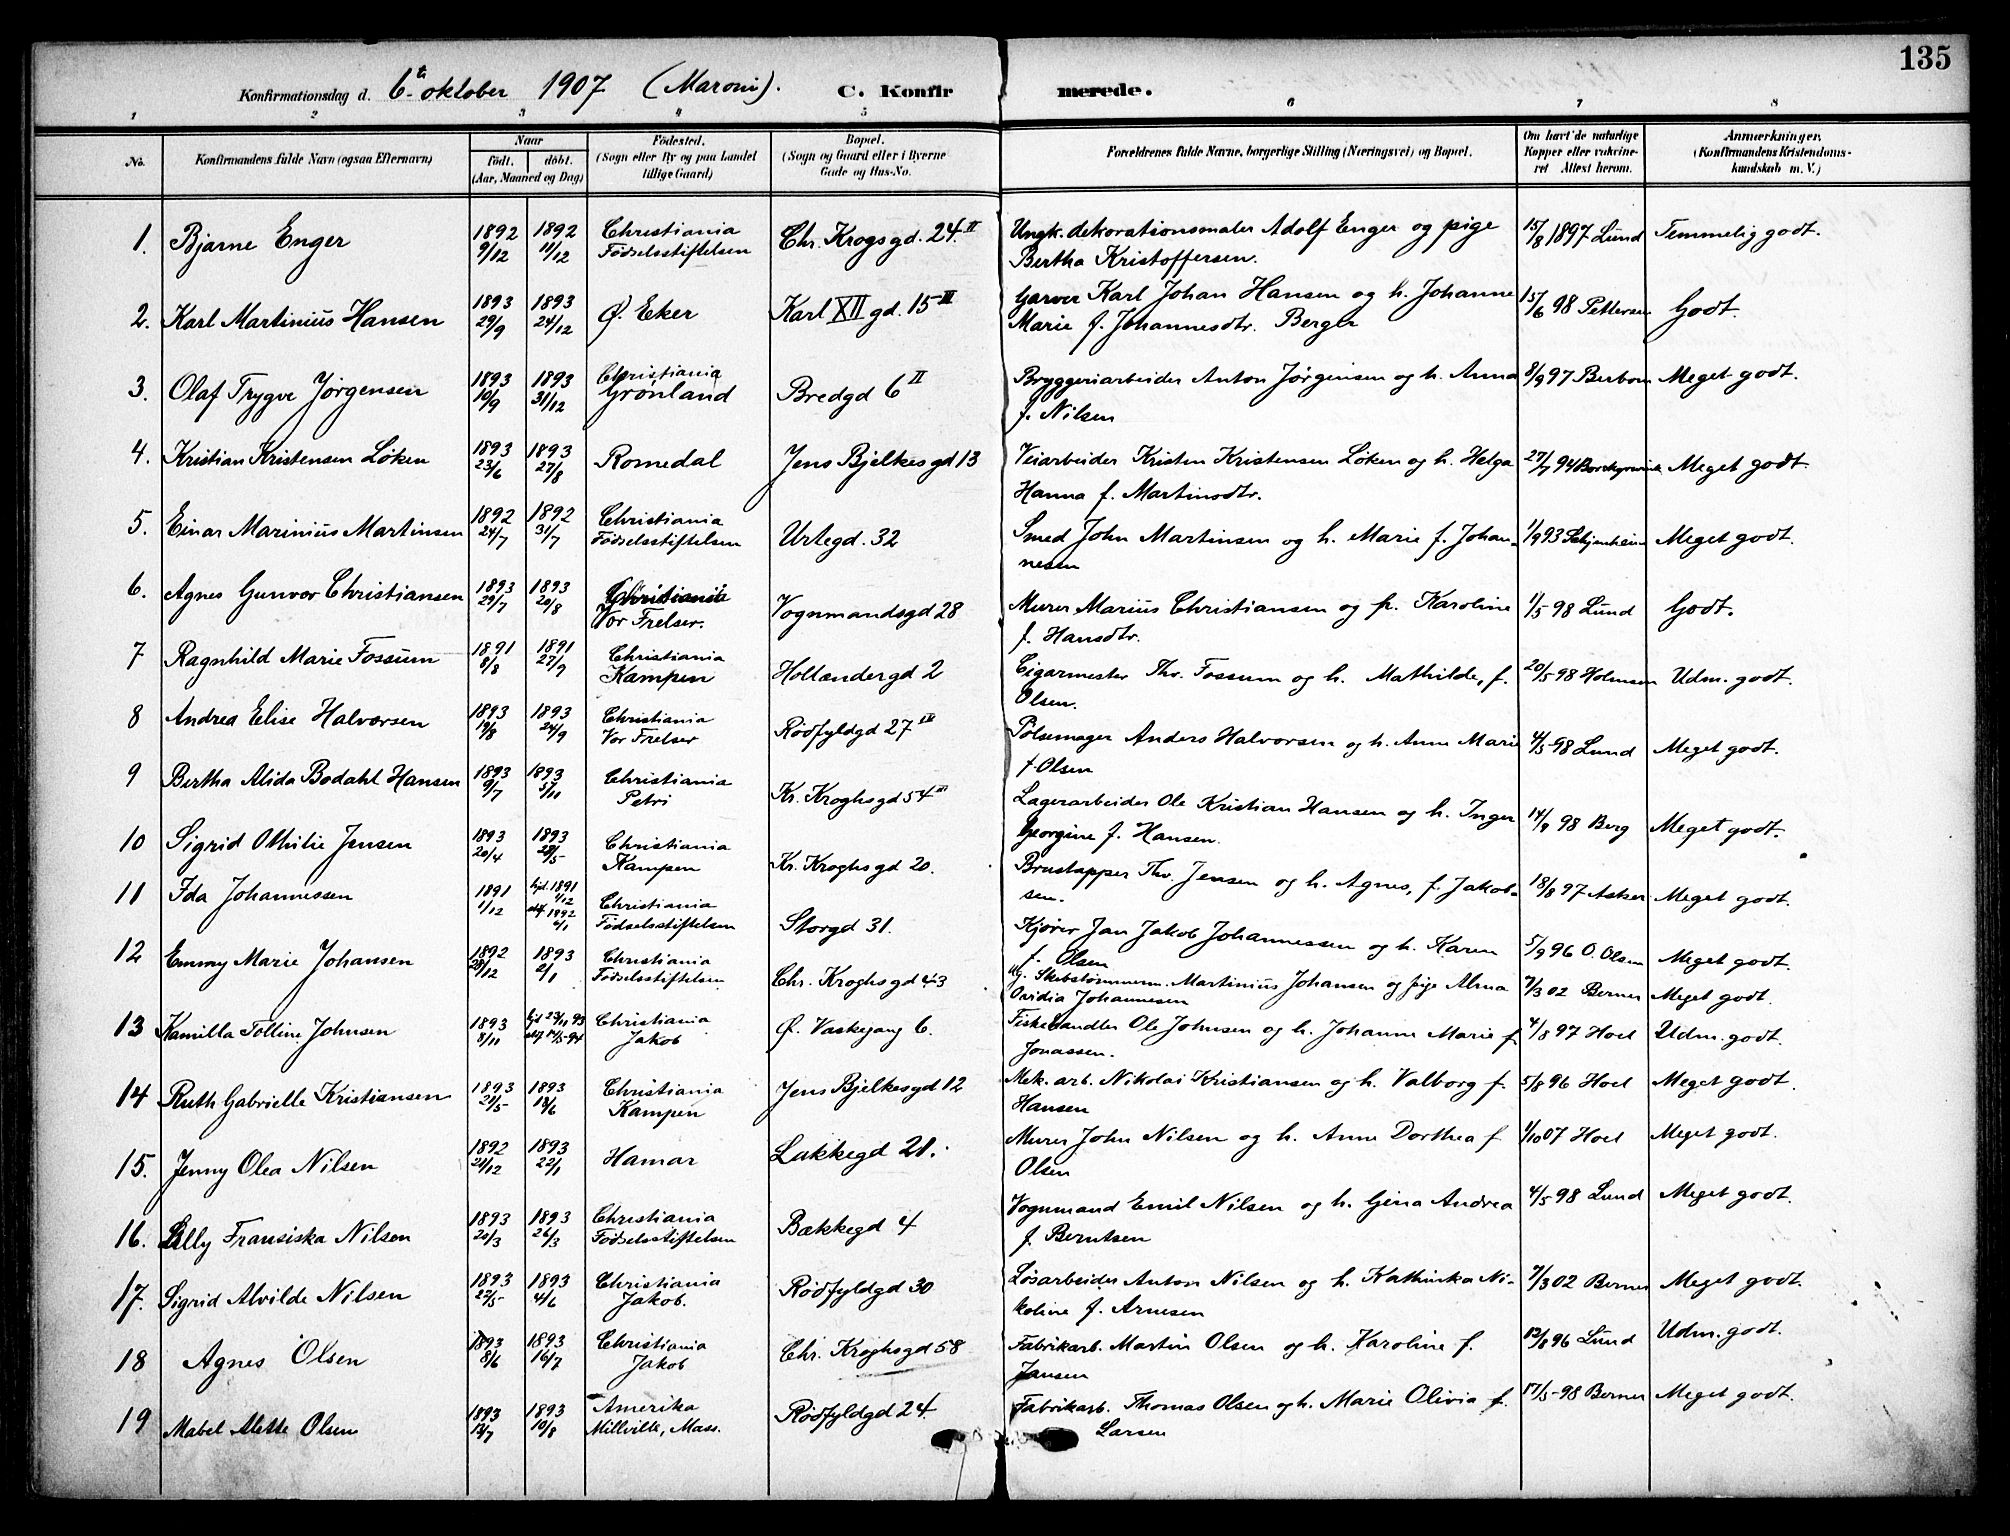 135
Konfirmationsdag d. 6te oktober 1907 (Maroni). C. Konfirmerede.
1 2 3 4 5 6 7 8
No. Konfirmandens fulde Navn (ogsaa Efternavn) Naar født. døbt. (Aar, Maaned og Dag) Fødested. (Sogn eller By og paa Landet tillige Gaard) Bopæl. (Sogn og Gaard eller i Byerne Gade og Hus-No. Forældrenes fulde Navne, borgerlige Stilling (Næringsvei) og Bopæl. Om havt de naturlige Kopper eller vakcineret Attest herom. Anmærkninger. (Konfirmandens Kristendomskundskab m. V.)
1. Bjarne Enger 1892 9/12 1892 11/12 Christiania Fødselsstiftelsen Chr. Krogsgd. 24 II Ungk. dekorationsmaler Adolf Enger og pige Bertha Kristoffersen. 15/8 1897 Lund Temmelig godt.
2. Karl Martinius Hansen 1893 29/9 1893 24/12 Ø. Eker Karl XII gd. 15 II Garver Karl Johan Hansen og h. Johanne Marie f. Johannesdtr. Berger 15/6 98 Pettersen Godt.
3. Olaf Trygve Jørgensen 1893 10/9 1893 31/12 Christiania Grønland Bredgd 6 II Bryggeriarbeider Anton Jørgensen og h. Anna f. Nilsen 8/9 97 Meget godt.
4. Kristian Kristensen Løken 1893 23/6 1893 27/8 Romedal Jens Bjelkesgd 13 Veiarbeider Kristen Kristensen Løken og h. Helga Hanna f. Martinsdtr. 27/7 94 Meget godt.
5. Einar Marinius Martinsen 1892 24/7 1892 31/7 Christiania Fødselsstiftelsen Urtegd. 32 Smed John Martinsen og h. Marie f. Johannesen 1/9 93 Meget godt.
6. Agnes Gunvor Christiansen 1893 29/7 1893 20/8 Christiania Vor Frelser. Vognmandsgd 28 Murer Marius Christiansen og h. Karoline f. Hansdtr. 1/5 98 Lund Godt.
7 Ragnhild Marie Fossum 1891 8/8 1891 27/9 Christiania Kampen Hollændergd 2 Cigarmester Thv. Fossum og h. Mathilde, f. Olsen. 20/5 98 Holmsen Udm. godt.
8 Andrea Elise Halvorsen 1893 19/8 1893 24/9 Christiania Vor Frelser Rødfyldgd 27 III Pølsemager Anders Halvorsen og h. Anne Marie f. Olsen 4/5 98 Lund Meget godt.
9 Bertha Alida Bodahl Hansen 1893 9/7 1893 5/11 Christiania Petri Kr. Kroghsgd 54 III Lagerarbeider Ole Kristian Hansen og h. Inger Georgine f. Hansen. 14/9 98 Berg Meget godt.
10 Sigrid Othilie Jensen 1893 20/4 1893 28/5 Christiania Kampen Kr. Kroghsgd 20. Brustapper Thv. Jensen og h. Agnes, f. Jakobsen. 18/8 97 Asker Meget godt.
11 Ida Johannessen 1891 1/12 hjd. 1891 1/12 stf. 1892 6/1 Christiania Fødselsstiftelsen Storgd 31. Kjører Jan Jakob Johannessen og h. Karen f. Olsen 5/9 96 O. Olsen Meget godt.
12 Emmy Marie Johansen 1892 28/12 1893 2/1 Christiania Fødselsstiftelsen Chr. Kroghsgd 43 Ug. Skibstømmerm. Martinius Johansen og pige Alma Ovidia Johannesen 7/3 02 Berner Meget godt.
13 Kamilla Tolline Johnsen 1893 8/11 hjd 23/11 93 stf 14/5-94 Christiania Jakob Ø. Vaskegang 6. Fiskehandler Ole Johnsen og h. Johanne Marie f. Jonassen. 4/8 97 Hoel Udm. godt.
14 Ruth Gabrielle Kristiansen 1893 21/5 1893 18/6 Christiania Kampen Jens Bjelkesgd 12 Mek. arb. Nikolai Kristiansen og h. Valborg f. Hansen 5/8 96 Hoel Meget godt.
15. Jenny Olea Nilsen 1892 24/12 1893 22/1 Hamar Lakkegd 21. Murer John Nilsen og h. Anne Dorthea f. Olsen 1/10 07 Hoel Meget godt.
16. Lilly Fransiska Nilsen 1893 20/3 1893 26/3 Christiania Fødselsstiftelsen Bækkegd 4 Vognmand Emil Nilsen og h. Gina Andrea f. Berntsen 4/5 98 Lund Meget godt.
17. Sigrid Alvilde Nilsen 1893 22/5 1893 4/6 Christiania Jakob. Rødfyldgd 30 Løsarbeider Anton Nilsen og h. Kathinka Nikoline f. Arnesen 7/3 02 Berner Meget godt.
18 Agnes Olsen 1893 8/6 1893 16/7 Christiania Jakob Chr. Kroghsgd 58 Fabrikarb. Martin Olsen og h. Karoline f. Jansen 12/8 96 Lund Udm. godt.
19 Mabel Alette Olsen 1893 13/7 1893 10/8 Amerika Millville, Mass. Rødfyldgd 24. Fabrikarb. Thomas Olsen og h. Marie Olivia f. Larsen 17/5-98 Berner Meget godt.